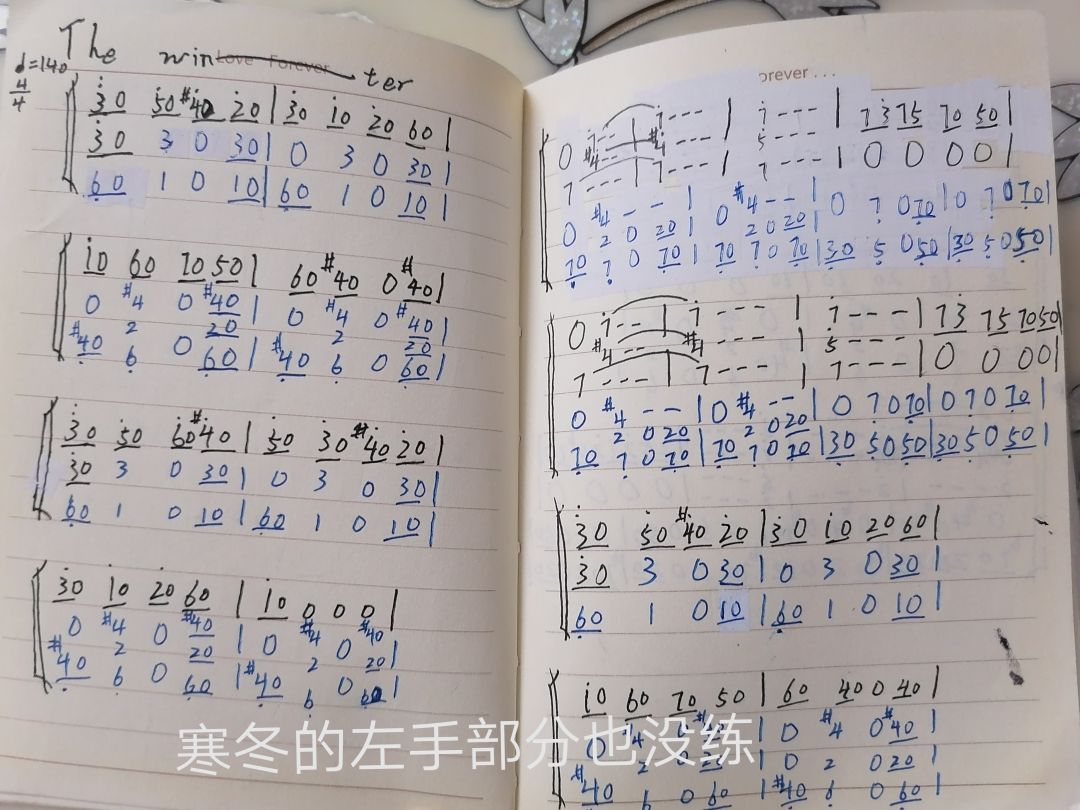 The winter
Love Forever
♩=140
4/4
3̇0 5̇0 #4̇0 2̇0 | 3̇0 1̇0 2̇0 60 |
30 3 0 30 | 0 3 0 30 |
6̣0 1 0 10 | 6̣0 1 0 10 |
1̇0 60 70 50 | 60 #40 0 #40 |
0 #4 0 #40 | 0 #4 0 #40 |
2 20 2 20
#4̣0 6̣ 0 6̣0 | #4̣0 6̣ 0 6̣0 |
3̇0 5̇0 6̇0 #4̇0 | 5̇0 3̇0 #4̇0 2̇0 |
30 3 0 30 | 0 3 0 30 |
6̣0 1 0 10 | 6̣0 1 0 10 |
3̇0 1̇0 2̇0 60 | 1̇0 0 0 0 |
0 #4 0 #40 | 0 #4 0 #40
2 20 2 20 |
#4̣0 6̣ 0 6̣0 | #4̣0 6̣ 0 6̣0 |
orever . . .
7 - - - | 7 - - - | 0 0 0 0 |
0 #4 - - | 0 #4 - - | 0 7̣ 0 7̣0 | 0 7̣ 0 7̣0 |
2 0 20 2 0 20
7̣0 7̣ 0 7̣0 | 7̣0 7̣ 0 7̣0 | 3̣0 5̣ 0 5̣0 | 3̣0 5̣ 0 5̣0 |
0 7̇ - - | 7̇ - - - | 7̇ - - - | 73̇ 75 70 50 |
#4 - - #4 - - - 5 - - -
7 - - - | 7 - - - | 7 - - - | 0 0 0 0 |
0 #4 - - | 0 #4 - - | 0 7 0 70 | 0 7 0 70 |
2 0 20 2 0 20
7̣0 7̣ 0 7̣0 | 7̣0 7̣ 0 7̣0 | 3̣0 5̣0 5̣0 | 3̣0 5̣0 5̣0 |
3̇0 5̇0 #4̇0 2̇0 | 3̇0 1̇0 20 60 |
30 3 0 30 | 0 3 0 30 |
6̣0 1 0 10 | 6̣0 1 0 10 |
1̇0 60 70 50 | 60 40 0 40 |
0 #4 0 #40 | 0 #4 0 #40 |
0 2 0 20 | 0 2 0 20 |
#4̣0 6̣ 0 6̣0 | #4̣0 6̣ 0 6̣0 |
寒冬的左手部分也没练